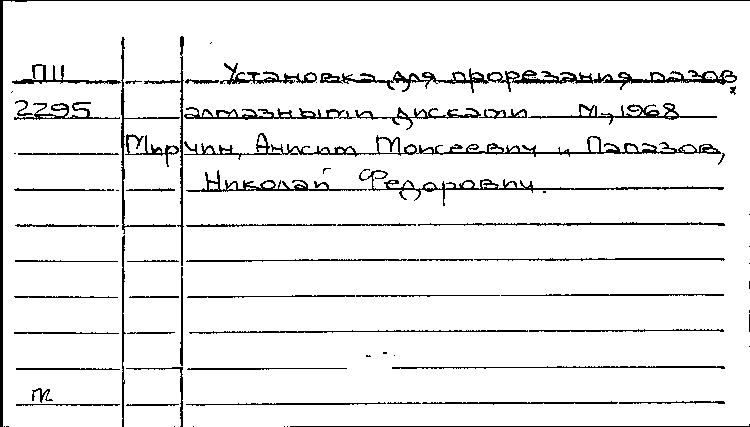 П11 Установка для прорезания пазов
2295 алмазными дисками М., 1968
Мирчин, Анисим Моисеевич и Папазов,
Николай Федорович.